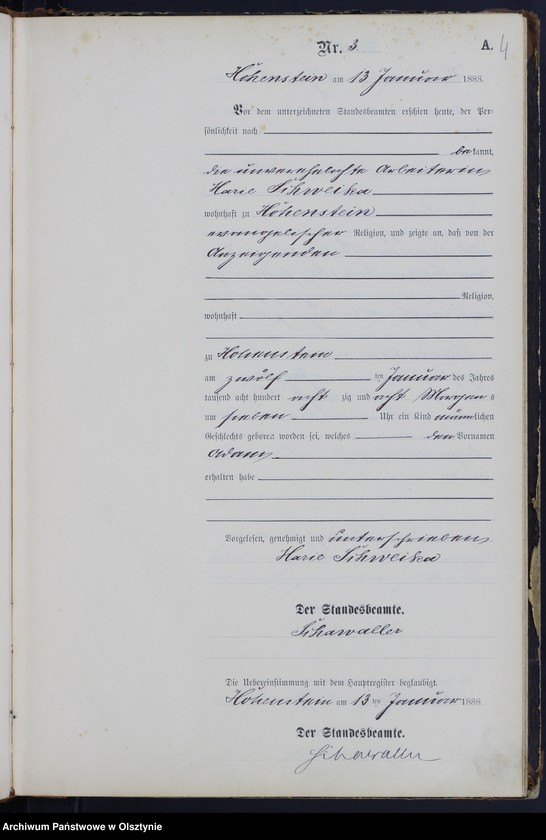 Nr. 3
A. 4
Hohenstein am 13 Januar 1888.
Vor dem unterzeichneten Standesbeamten erschien heute, der Per-
sönlichkeit nach
bekannt,
die unverehelichte Arbeiterin
Marie Schweika
wohnhaft zu Hohenstein
evangelischer Religion, und zeigte an, daß von der
Anzeigenden
Religion,
wohnhaft
zu Hohenstein
am zwölf ten Januar des Jahres
tausend acht hundert achtzig und acht Morgens
um sieben Uhr ein Kind männlichen
Geschlechts geboren worden sei, welches den Vornamen
Adam
erhalten habe
Vorgelesen, genehmigt und unterschrieben
Marie Schweika
Der Standesbeamte.
Schawaller
Die Uebereinstimmung mit dem Hauptregister beglaubigt.
Hohenstein am 13ten Januar 1888
Der Standesbeamte.
Schawaller
Archiwum Państwowe w Olsztynie